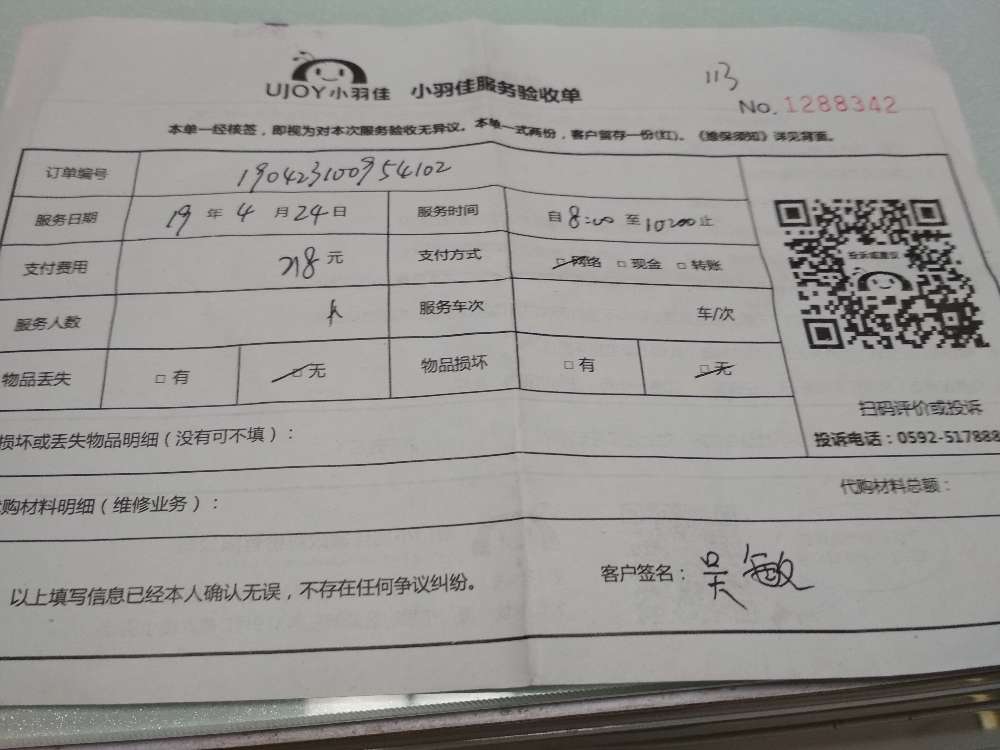 UJOY小羽佳 小羽佳服务验收单
113
No. 1288342
本单一经核签，即视为对本次服务验收无异议。本单一式两份，客户留存一份(红)。《维保须知》详见背面。
订单编号 190423100954102
服务日期 19 年 4 月 24 日 服务时间 自 8:00 至 10:00 止
支付费用 218 元 支付方式 □ 网络 □ 现金 □ 转账
服务人数 服务车次 车/次
物品丢失 □ 有 □ 无 物品损坏 □ 有 □ 无
投诉或建议
扫码评价或投诉
投诉电话：0592-517888
损坏或丢失物品明细（没有可不填）：
购材料明细（维修业务）： 代购材料总额：
以上填写信息已经本人确认无误，不存在任何争议纠纷。 客户签名：吴敏